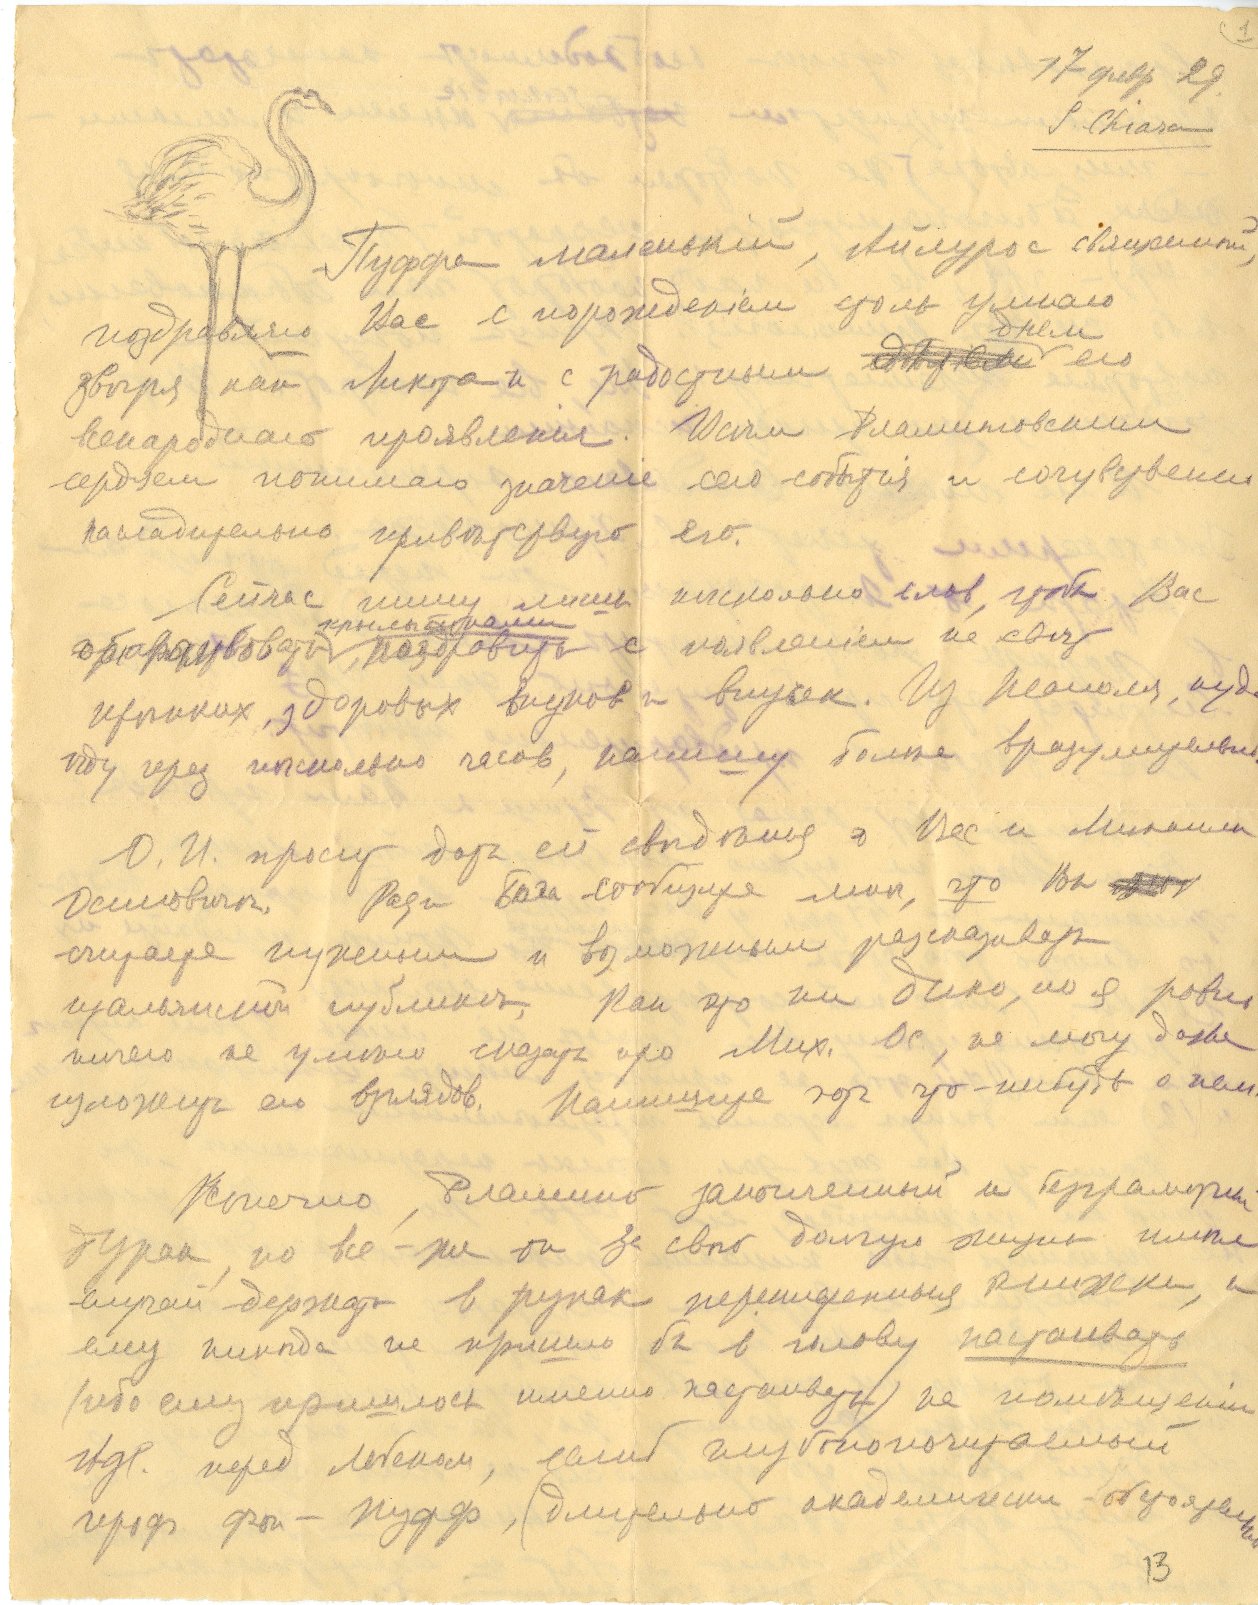 1
17 февр 29.
S. Chiara
Пуффа маленькiй, Айлурос священный,
поздравляю Вас с порожденiем столь умнаго
звѣря как Ликта и с радостным днем его
всенароднаго проявленiя. Всѣм Фламинговским
сердцем понимаю значенiе сего событiя и сочувственно
насладительно привѣтствую его.
Сейчас пишу лишь нѣсколько слов, чтобы Вас
крыльями
поздравить с появленiем на свѣт
крѣпких, здоровых внуков и внучек. Из Неаполя, куда
ѣду через нѣсколько часов, напишу болѣе вразумительно.
О. И. просит дать ей свѣдѣнiя о Вас и Михаилѣ
Осиповичѣ. Ради Бога сообщите мнѣ, что Вы
считаете нужным и возможным разсказывать
итальянской публикѣ. Как это ни дико, но я ровно
ничего не умѣю сказать про Мих. Ос., не могу даже
изложить его взглядов. Напишите хоть что-нибудь о нем.
Конечно, Фламинго законченный и безграмотный
дурак, но все-же он за свою долгую жизнь имѣл
случай держать в руках переиденныя книжки, и
ему никогда не пришло бы в голову настаивать
(ибо ему пришлось именно настаивать) на помѣщенiи
перед Лебеком, если б глубокопочитаемый
проф. фон-Пуфф, (длительно академически-обстоятельно
13